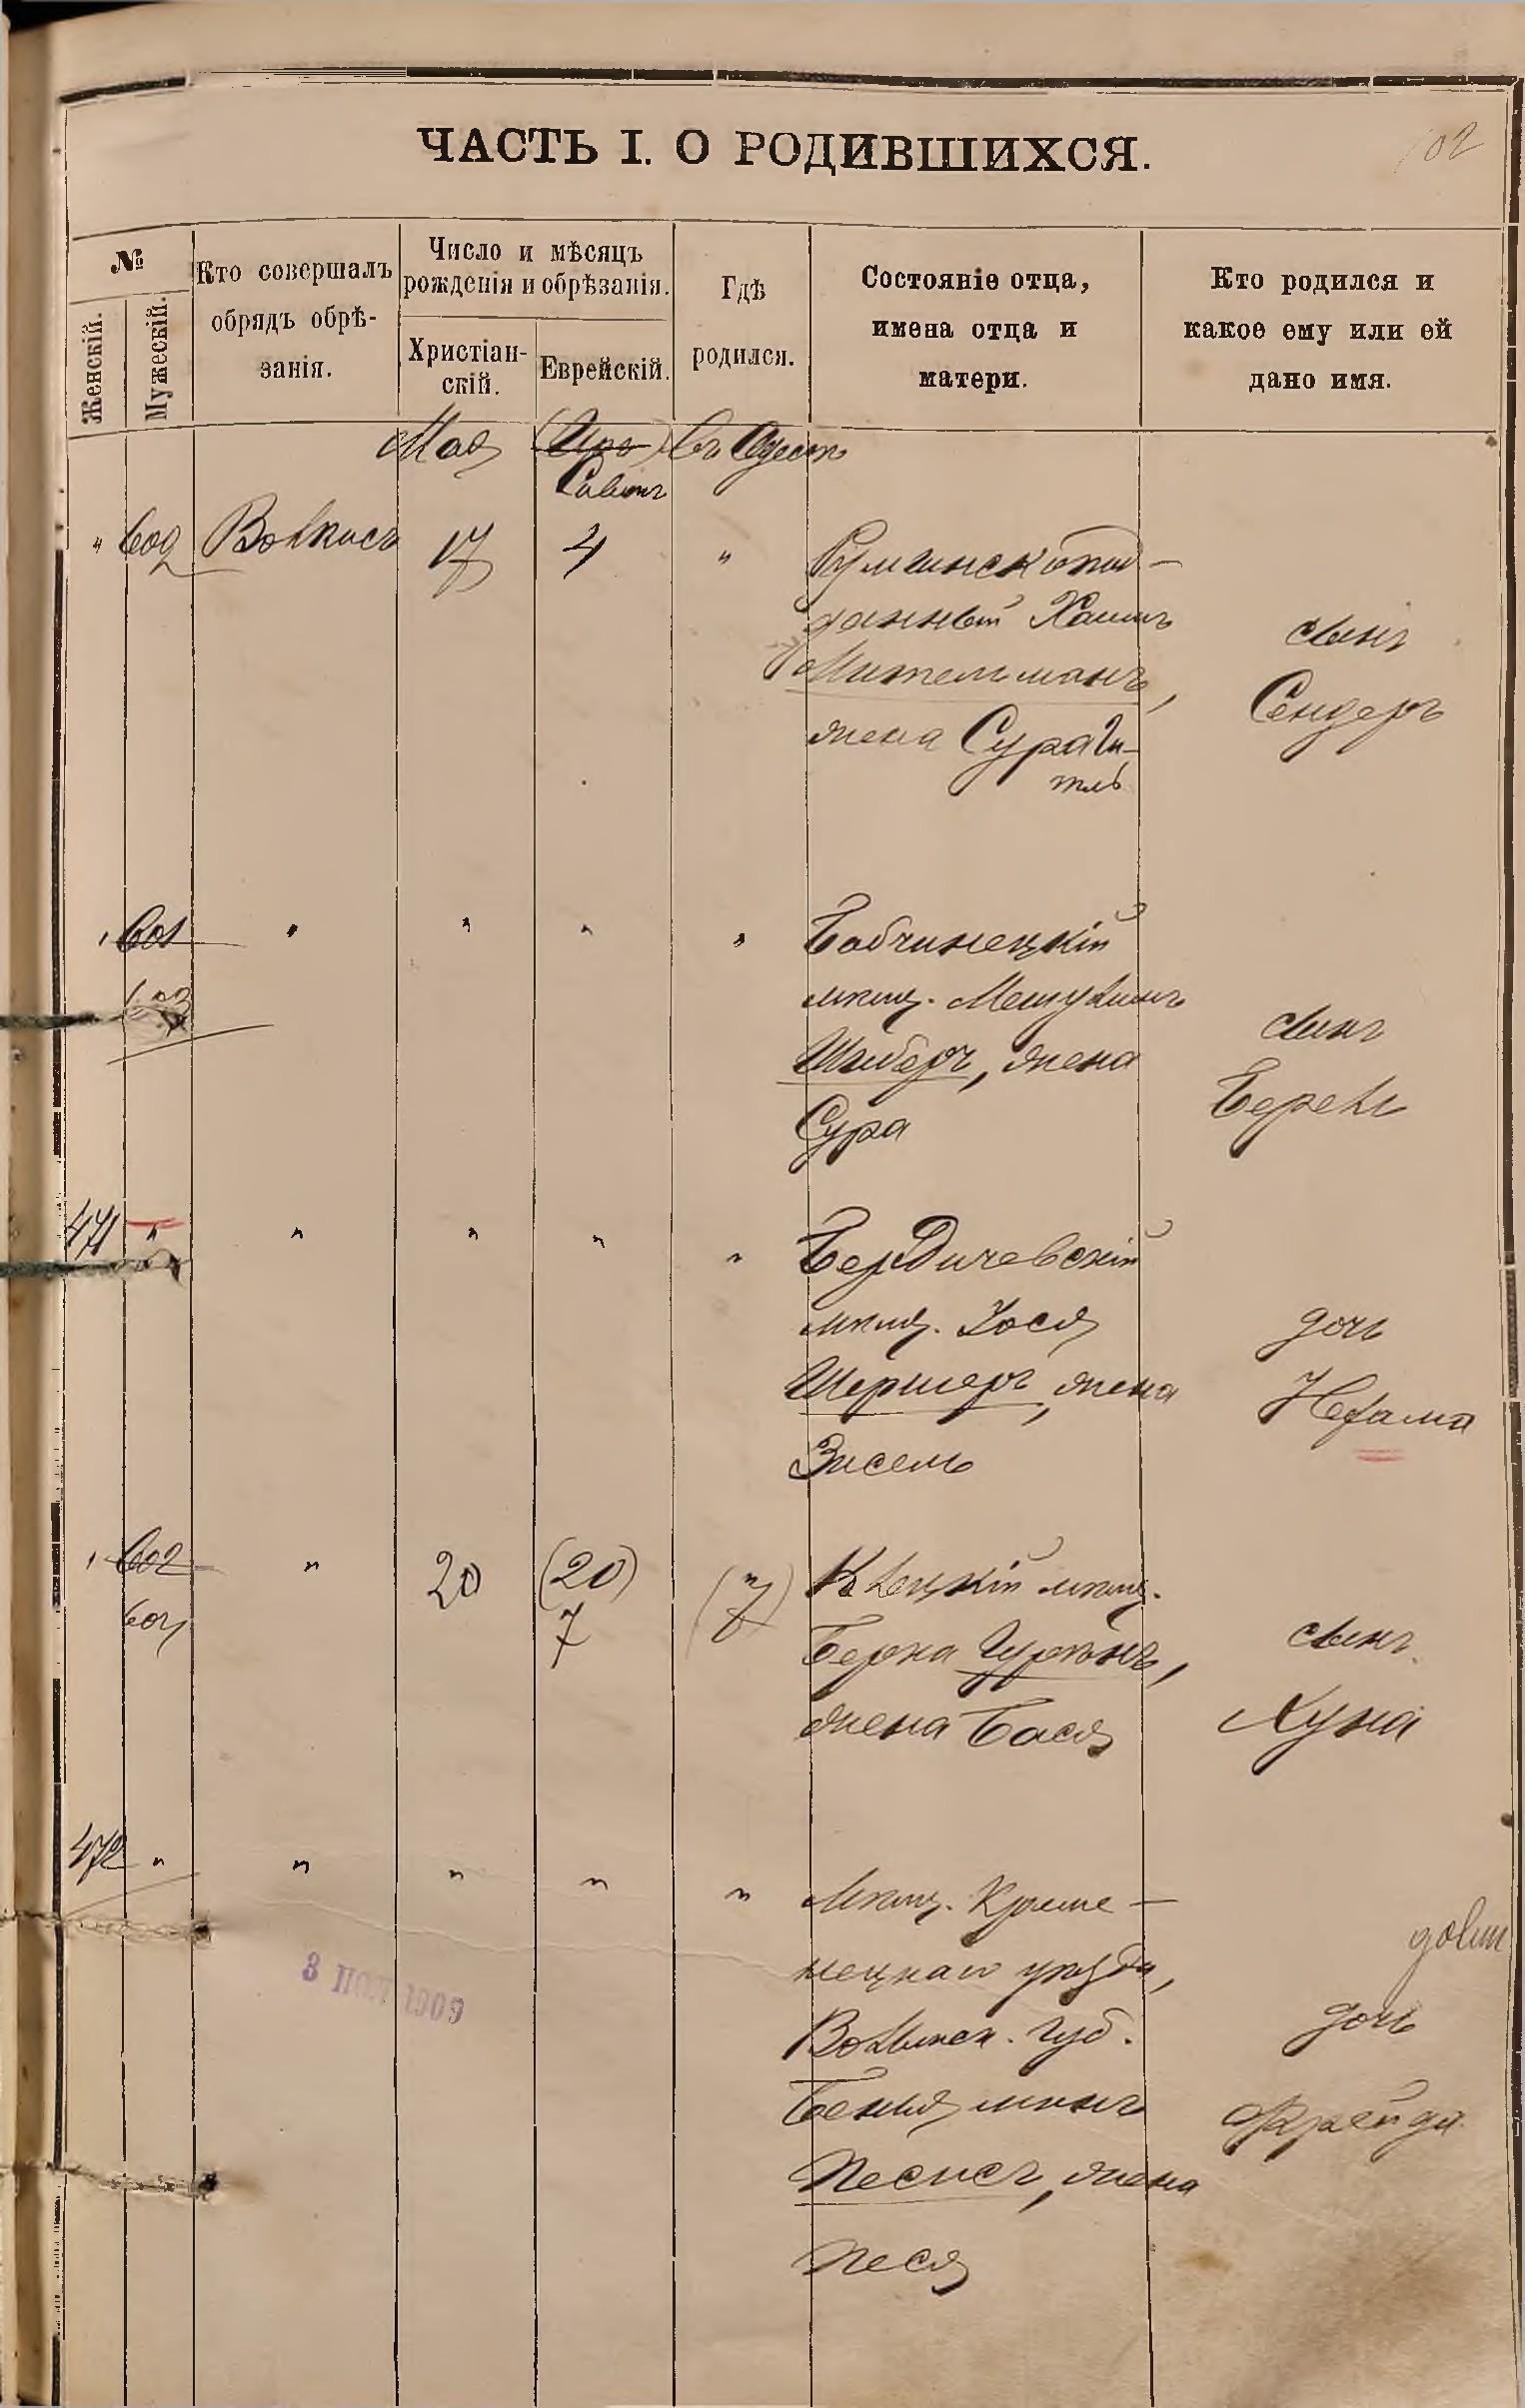 ЧАСТЬ I. О РОДИВШИХСЯ.
102
№
Женскій.
Мужескій.
Кто совершалъ
обрядъ обрѣ-
занія.
Число и мѣсяцъ
рожденія и обрѣзанія.
Христіан-
скій.
Еврейскій.
Гдѣ
родился.
Состояніе отца,
имена отца и
матери.
Кто родился и
какое ему или ей
дано имя.
Мая
Сивонъ
въ Одессѣ
" 602 17 4 "
Румынскоподд-
данный Хаимъ
Мительманъ,
жена Сура Ги-
тль
сынъ
Сендеръ
" 601 " " " "
603
Бабчинецкій
мѣщ. Мешулимъ
жена
Сура
сынъ
Берель
471 " " " " "
Бердичевскій
мѣщ. Іося
Шермеръ, жена
Зисель
дочь
Нехама
" 602 " 20 (20) (")
604 7
мѣщ.
Берка Гурвинъ,
жена Бася
сынъ
Хуна
472 " " " " "
Мѣщ. Креме-
нецкаго уѣзда,
Волынск. губ.
Беньяминъ
Песисъ, жена
Песя
дочь
Фрейда
3 ИЮЛ 1909